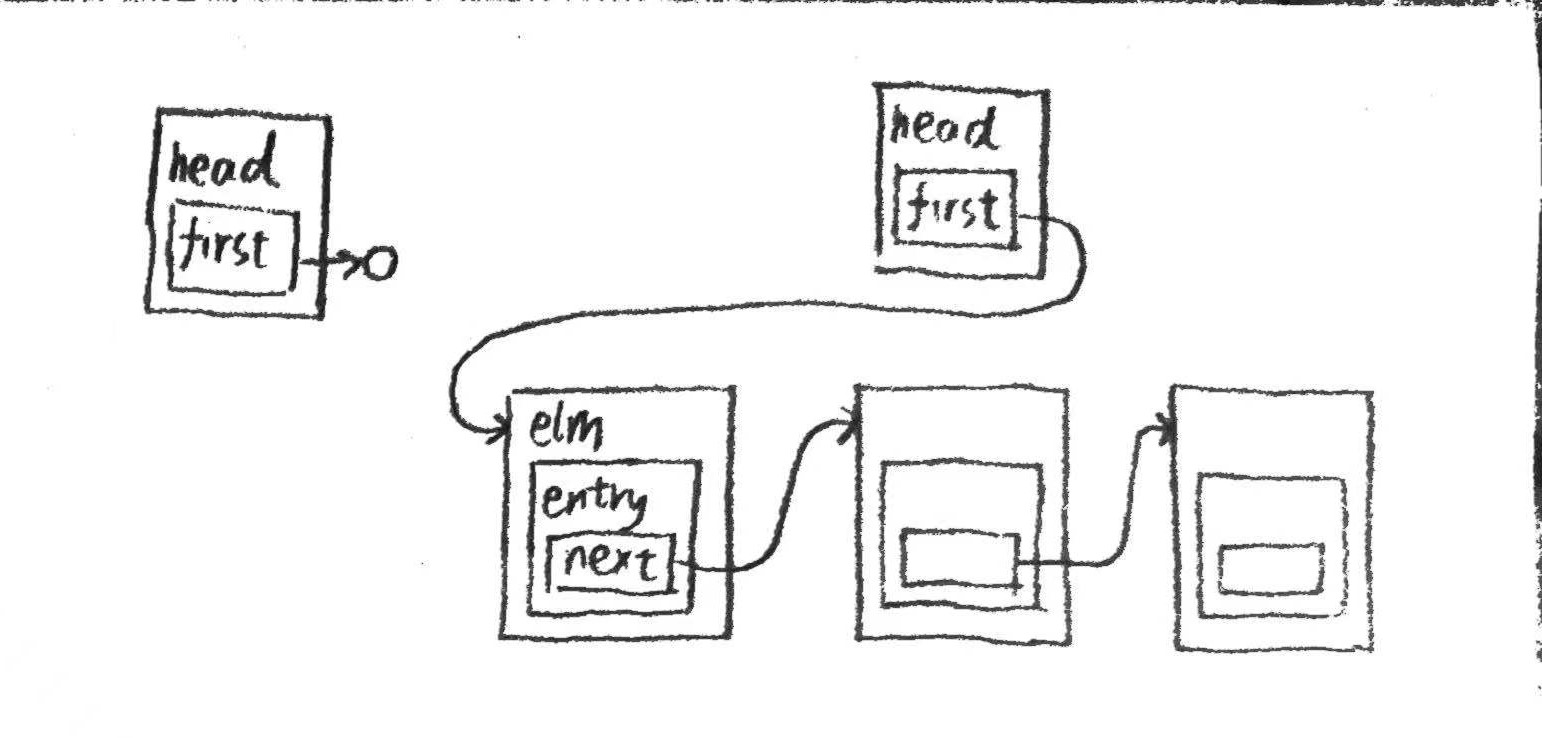 head
first
head
first
elm
entry
next